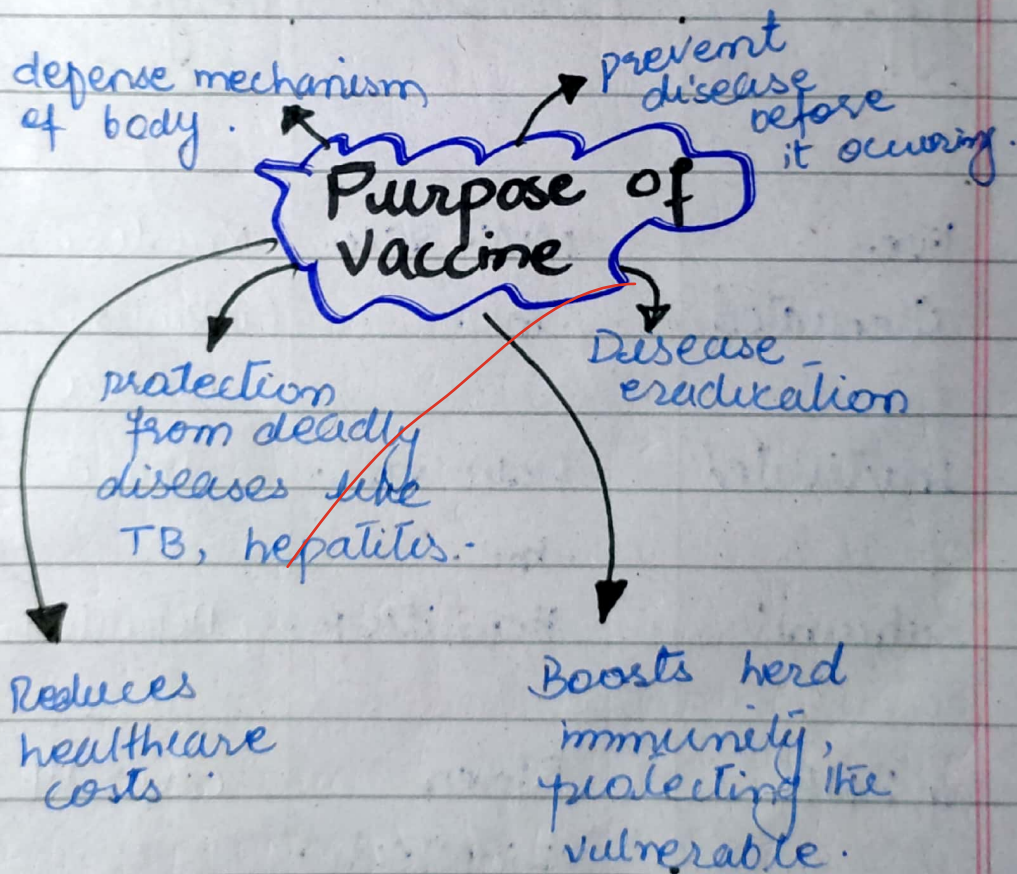 defense mechanism
of body.
prevent
disease
before
it occuring.
Purpose of
vaccine
protection
from deadly
diseases like
TB, hepatitis.
Disease
eradication
Reduces
healthcare
costs
Boosts herd
immunity,
protecting the
vulnerable.